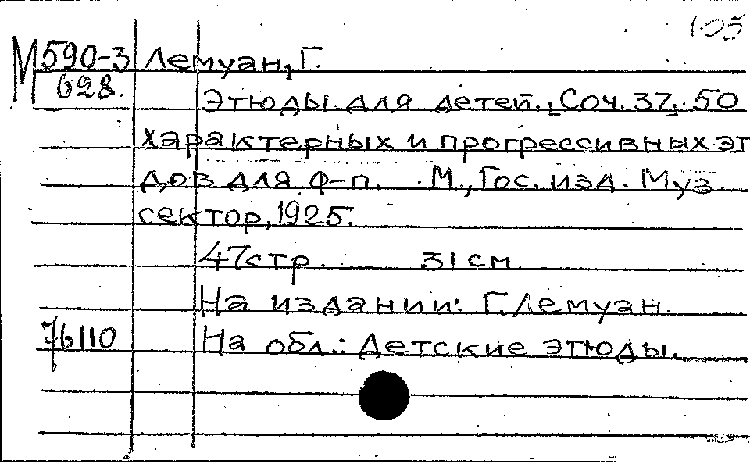 105
М 590-3 Лемуан, Г.
628.
Этюды для детей. [Соч. 37]. 50
характерных и прогрессивных эт
дов для ф-п. М., Гос. изд. Муз
сектор, 1925.
47 стр 31 см
На издании: Г. Лемуан.
76110 На обл.: Детские этюды.